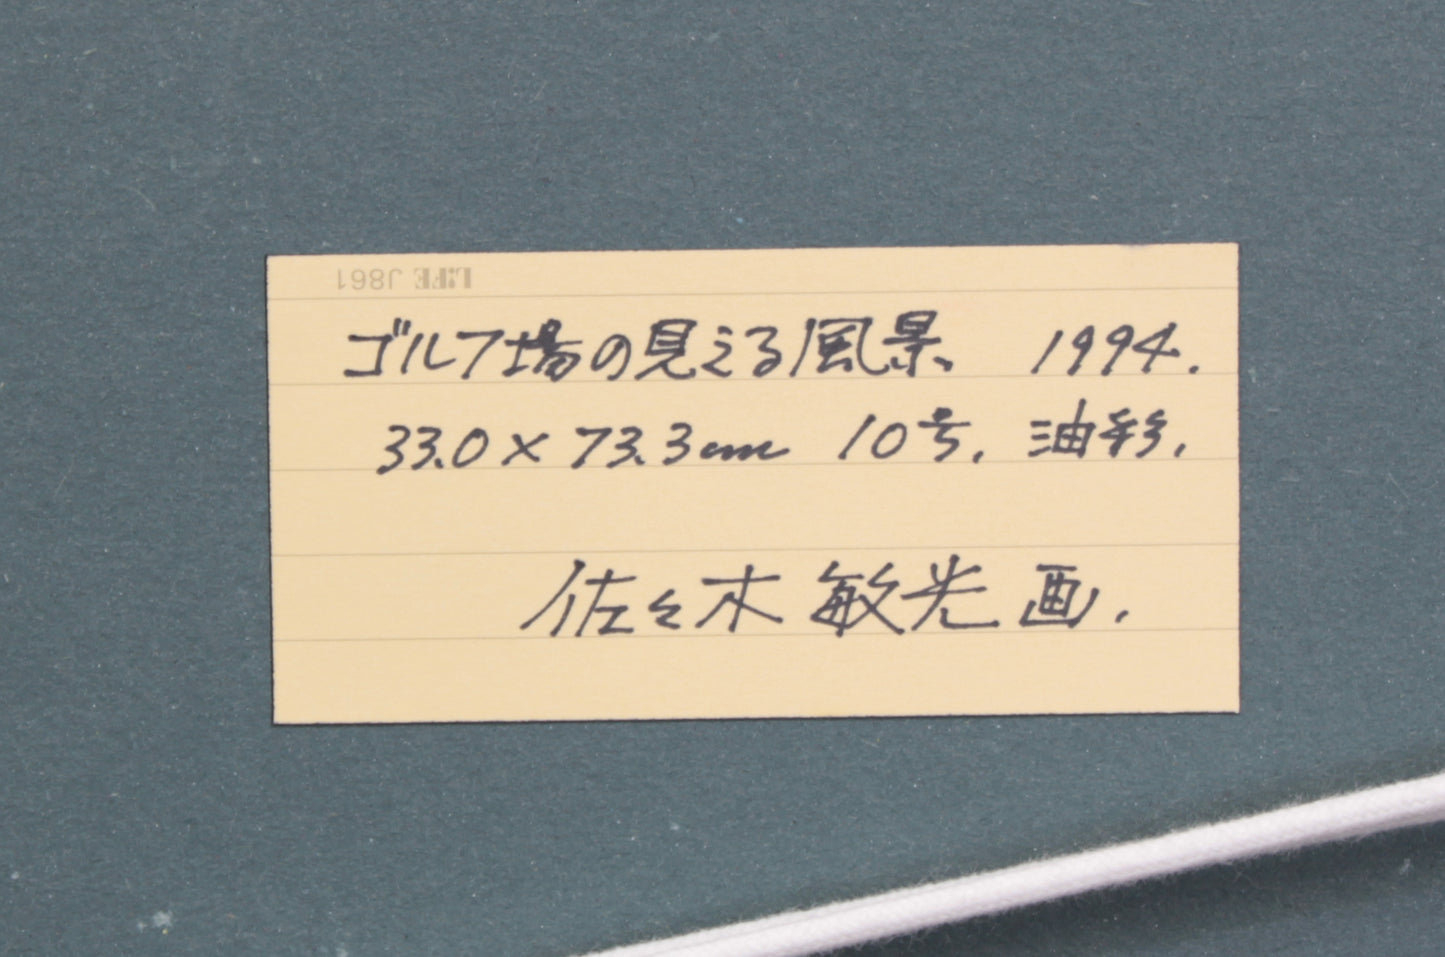 LIFE J861
ゴルフ場の見える風景、 1994.
33.0 × 73.3cm 10号. 油彩.
佐々木 敏光 画.